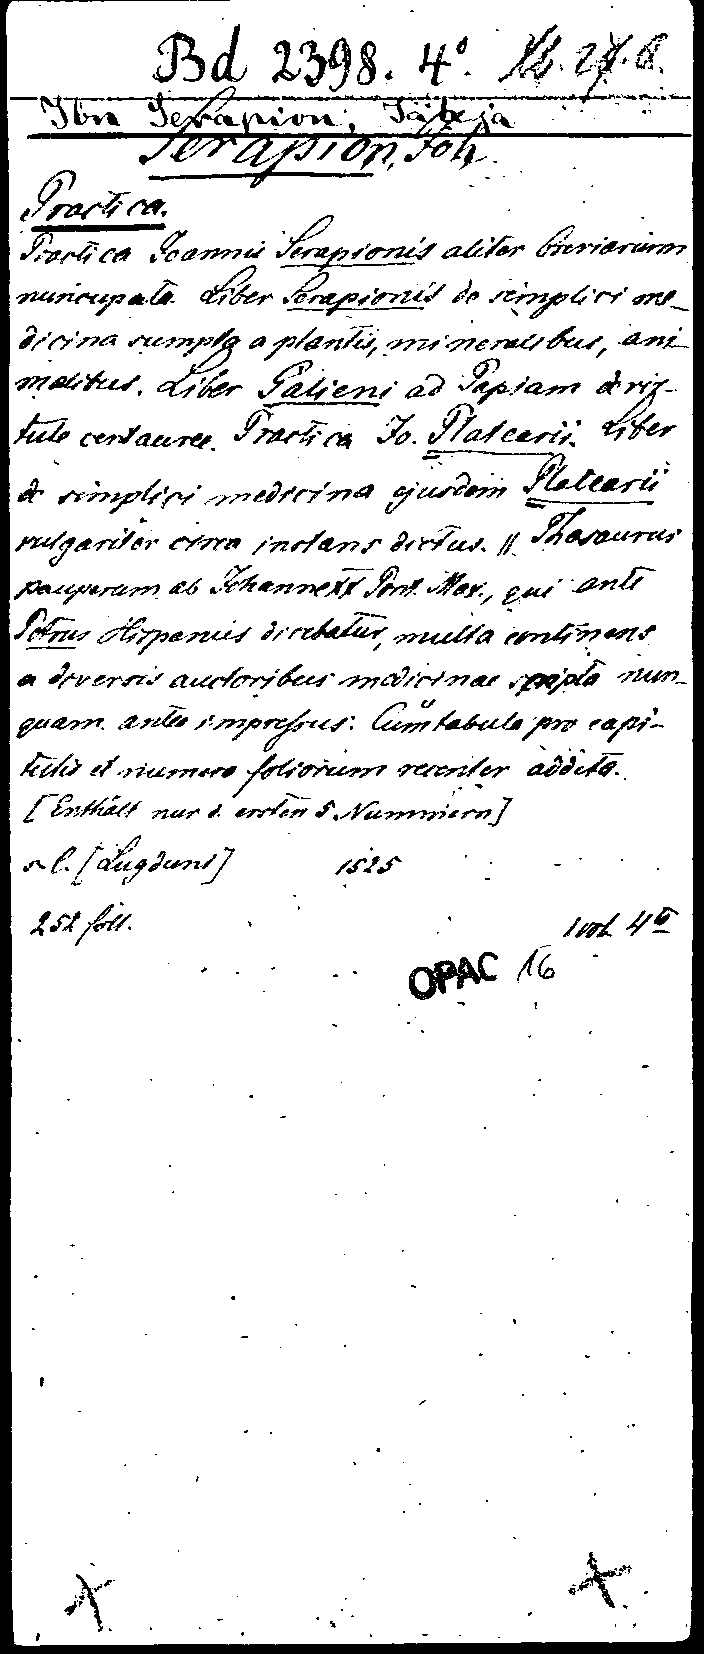 Bd 2398. 4°.
Ibn Serapion, Jaḥja
Serapion, Joh.
Practica.
Practica Joannis Serapionis aliter breviarium
nuncupata. Liber Serapionis de simplici me-
dicina sumpta a plantis, mineralibus, ani-
malibus. Liber Galieni ad Papiam de vir-
tute centauree. Practica Jo. Platearii. Liber
de simplici medicina ejusdem Platearii
vulgariter circa instans dictus. || Thesaurus
pauperum ab Johanne XX Pont. Max., qui ante
Petrus Hispanus dicebatur, multa continens
a diversis auctoribus medicinae scripta nun-
quam antea impressus. Cum tabula pro capi-
tulis et numero foliorum recenter addita.
[Enthält nur d. ersten 5 Nummern]
s. l. [Lugduni] 1525
252 foll. 1 vol. 4to
OPAC 16